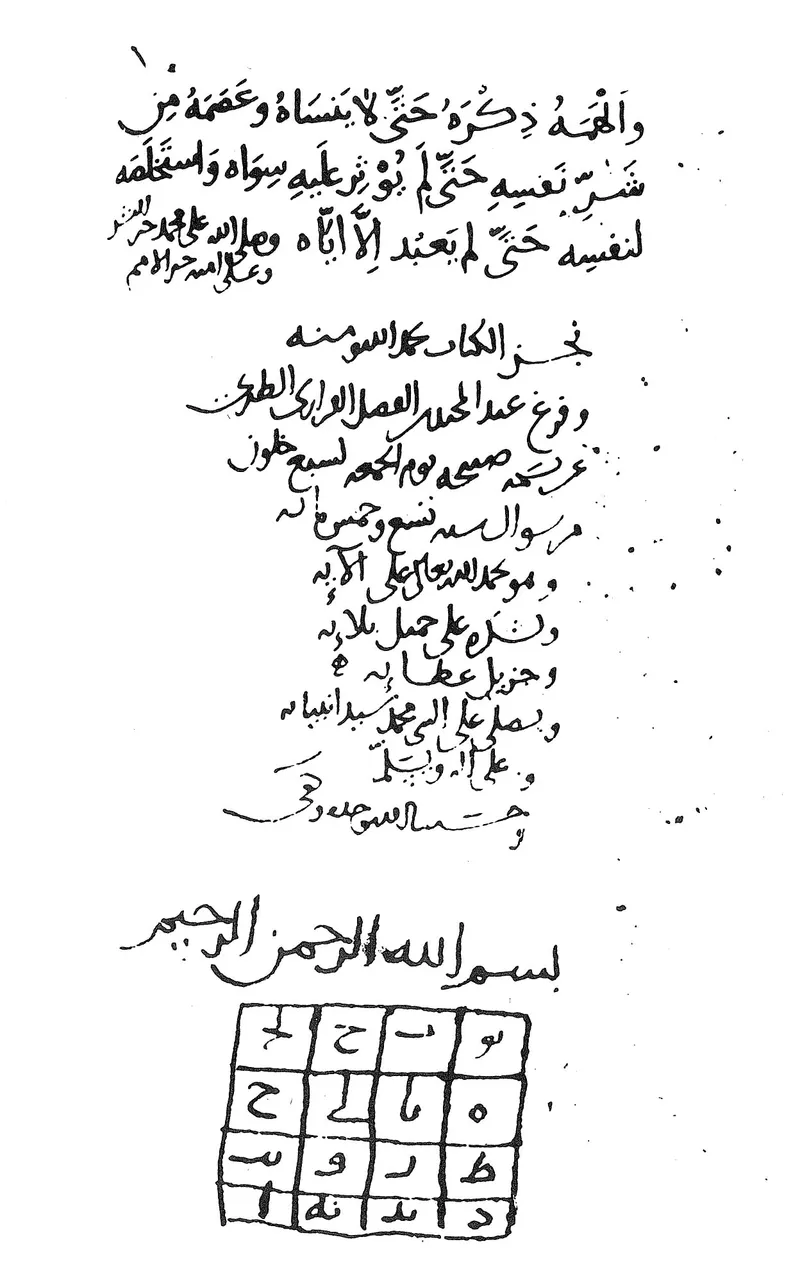 ١
وَأَلْهَمَهُ ذِكْرَهُ حَتَّى لَا يَنسَاهُ وعَصَمَهُ مِن
شَرِّ نَفسِهِ حَتَّى لَم يُؤْثِر عَلَيهِ سِوَاه وَاستَخلَصَه
لنفسِه حَتَّى لم يَعبُد إِلَّا ايَّاه وصلى الله على محمد خير البشر
وعلى امته خير الامم
نجز الكتاب بحمد الله ومنه
وفرغ عبد المجيد بن الفضل الفراري الطبري
عن نسخه صبيحه يوم الجمعه لسبع خلون
من شوال سنه تسع وخمس مائه
وهو يحمد الله تعالى على آلائه
ويشكره على جميل بلائه
وجزيل عطائه
ويصلي على النبي محمد سيد انبيائه
وعلى اله ويسلّم
وحسبنا الله وحده وكفى
بسم الله الرحمن الرحيم
يو ب ج يج
ه يا ي ح
ط ز و يب
د يد يه ا